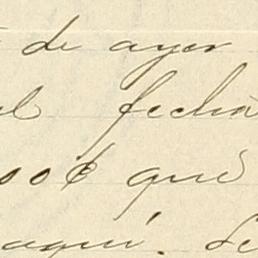 de ayer
fecha
00¢ que
aquí. Le